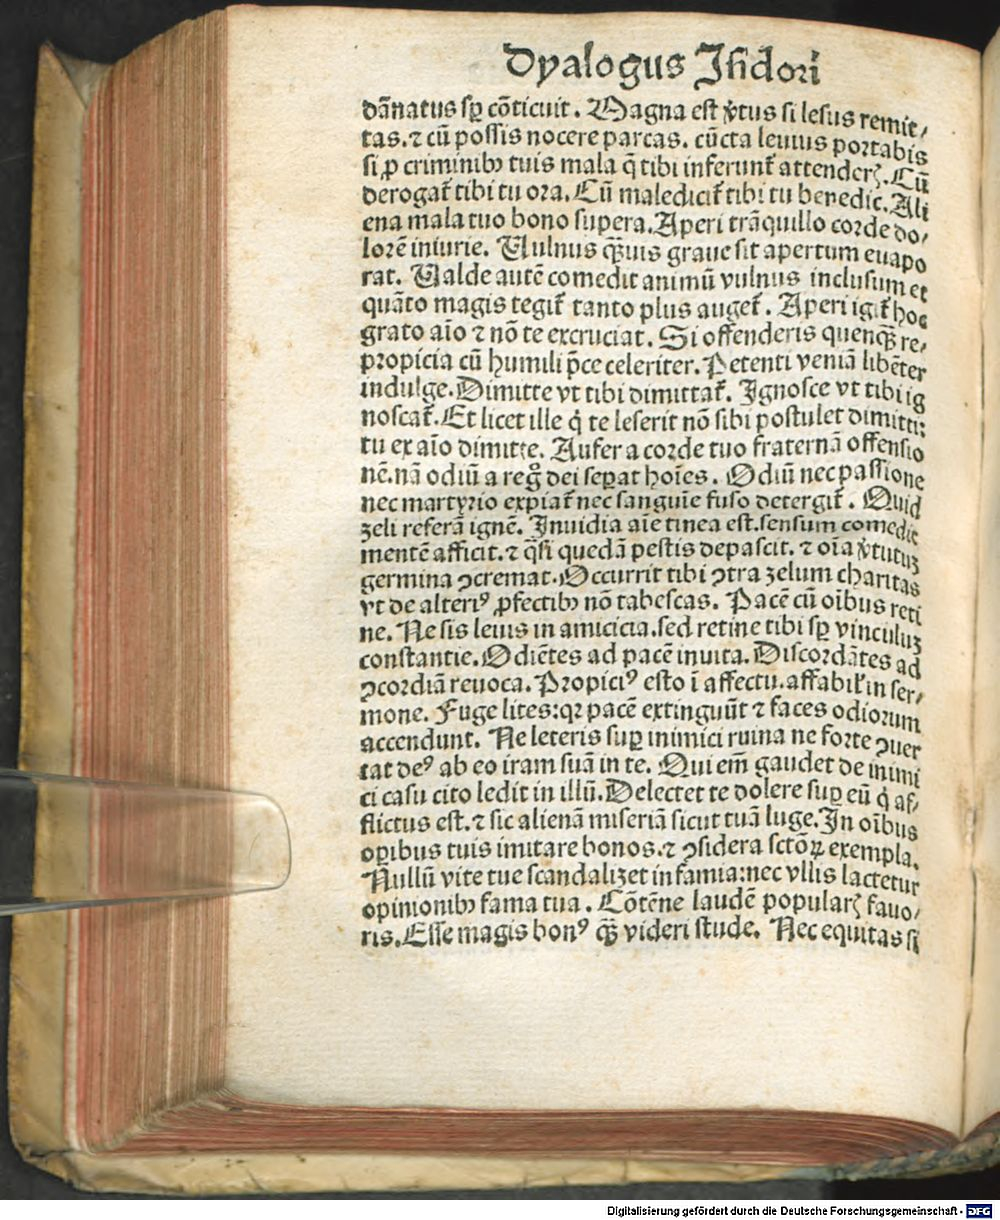 Dyalogus Isidori
dānatus sꝑ cōticuit. Magna est v̾tus si lesus remit/
tas. ⁊ cū possis nocere parcas. cūcta leuius portabis
si ꝓ criminibꝫ tuis mala q̄ tibi inferunt᷑ attenderꝭ. Cū
derogat᷑ tibi tu ora. Cū maledicit᷑ tibi tu benedic. Ali
ena mala tuo bono supera. Aperi trāquillo corde do/
lorē iniurie. Uulnus qͣuis graue sit apertum euapo
rat. Ualde autē comedit animū vulnus inclusum et
quāto magis tegit᷑ tanto plus auget᷑. Aperi igit᷑ hoc
grato aīo ⁊ nō te excruciat. Si offenderis quenqͣ re/
propicia cū humili p̄ce celeriter. Petenti veniā libēter
indulge. Dimitte vt tibi dimittat᷑. Ignosce vt tibi ig
noscat᷑. Et licet ille q̇ te leserit nō sibi postulet dimitti:
tu ex aīo dimitte. Aufer a corde tuo fraternā offensio
nē. nā odiū a regͦ dei seꝑat hoīes. Odiū nec passione
nec martyrio expiat᷑ nec sanguīe fuso detergit᷑. Quid
zeli referā ignē. Inuidia aīe tinea est. sensum comedit
mentē afficit. ⁊ qͣsi quedā pestis depascit. ⁊ oīa v̾tutuꝫ
germina ꝯcremat. Occurrit tibi ꝯtra zelum charitas
vt de alteriꝰ ꝓfectibꝫ nō tabescas. Pacē cū oībus reti
ne. Ne sis leuis in amicicia. sed retine tibi sꝑ vinculuꝫ
constantie. Odiētes ad pacē inuita. Discordātes ad
ꝯcordiā reuoca. Propiciꝰ esto ī affectu. affabil᷑ in ser/
mone. Fuge lites: qꝛ pacē extinguūt ⁊ faces odiorum
accendunt. Ne leteris suꝑ inimici ruina ne forte ꝯuer
tat deꝰ ab eo iram suā in te. Qui em̄ gaudet de inimi
ci casu cito ledit in illū. Delectet te dolere suꝑ eū q̇ af/
flictus est. ⁊ sic alienā miseriā sicut tuā luge. In oībus
oꝑibus tuis imitare bonos. ⁊ ꝯsidera sctōꝝ exempla.
Nullū vite tue scandalizet infamia: nec vllis lactetur
opinionibꝫ fama tua. Cōtēne laudē popularꝭ fauo/
ris. Esse magis bonꝰ qͣꝫ videri stude. Nec equitas si
Digitalisierung gefördert durch die Deutsche Forschungsgemeinschaft - DFG